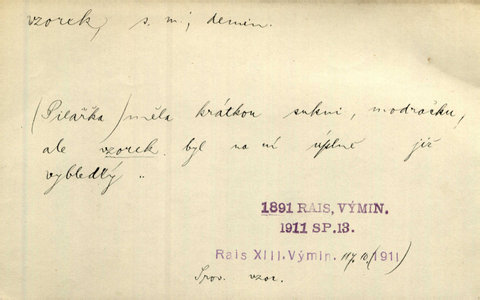 vzorek, s. m.; demin.
(Pilařka) měla krátkou sukni, modračku,
ale vzorek byl na ní úplně již
vybledlý „
1891 RAIS, VÝMIN.
1911 SP. 13.
Rais XIII. Výmin. (1911)
Srov. vzor.